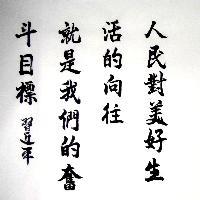 人民對美好生
活的向往
就是我們的奮
斗目標 習近平